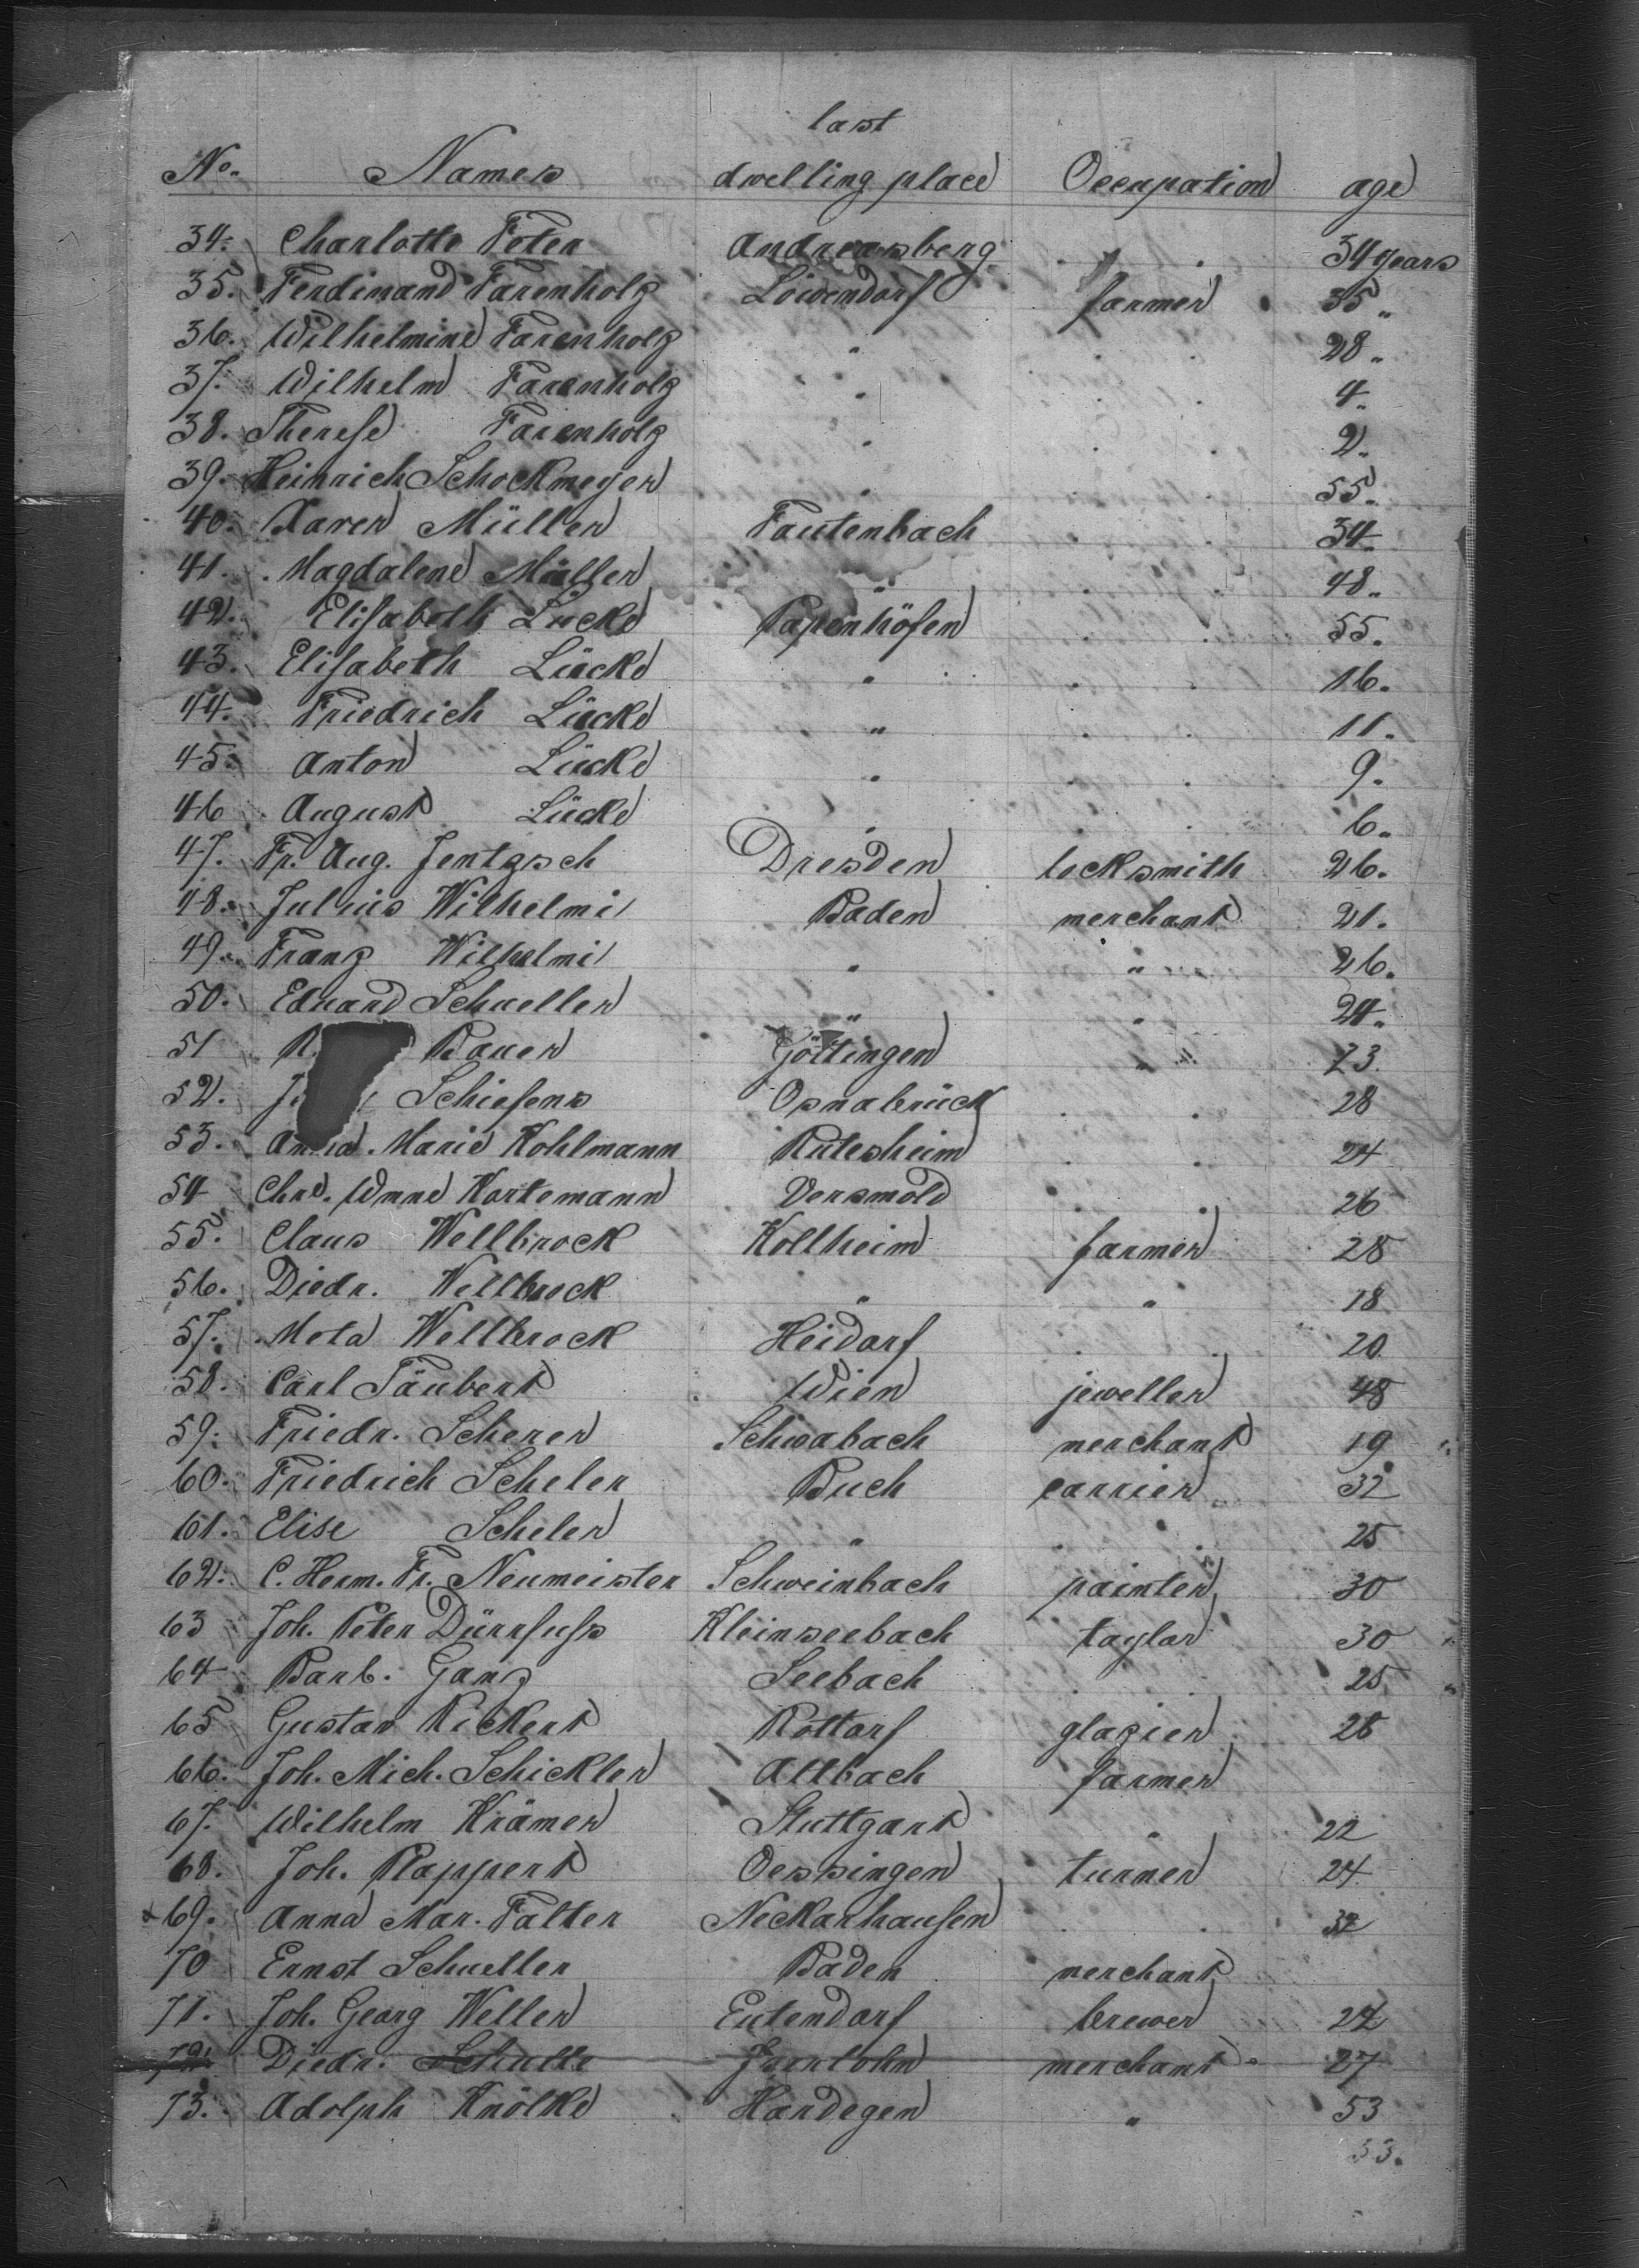 last
No. Names dwelling place Occupation age
34. Charlotte Feter Andreasberg . . 34 years
35. Ferdinand Farenholz Löwendorf farmer 35 "
36. Wilhelmine Farenholz " . . 28 "
37. Wilhelm Farenholz " . . 4 "
38. Therese Farenholz " . . 2 "
39. Heinrich Schockmeyer " . . 55 "
40. Xaver Müller Fautenbach . . 34 "
41. Magdalene Müller " . . 48 "
42. Elisabeth Lücke Papenhöfen . . 55 "
43. Elisabeth Lücke " . . 16 "
44. Friedrich Lücke " . . 11 "
45. Anton Lücke " . . 9 "
46 August Lücke " . . 6 "
47. Fr. Aug. Jentzsch Dresden locksmith 26 "
48. Julius Wilhelmi Baden merchant 21 "
49. Franz Wilhelmi " " 26 "
50. Eduard Schueller " " 24 "
51 R. Bauer Göttingen " 23
52. Schiefens Osnabrück . . 28
53. Anna Marie Kohlmann Rutesheim . . 24
54 Chre. Wmne Kortemann Versmold . . 26
55. Claus Wellbrock Kollheim farmer 28
56. Diedr. Wellbrock " " 18
57. Meta Wellbrock Heidorf . . 20
58. Carl Täubert Wien jeweller 48
59. Friedr. Scherer Schwabach merchant 19
60. Friedrich Scheler Buch carrier 32
61. Elise Scheler " . . 25
62. C. Herm. Fr. Neumeister Schweinbach painter 30
63 Joh. Peter Dürrfuss Kleinseebach taylor 30
64 Barb. Ganz Seebach . . 25
65 Gustav Kickert Rottorf glazier 26
66. Joh. Mich. Schickler Altbach farmer
67. Wilhelm Krämer Stuttgart " 22
68. Joh. Rappert Oessingen turner 24
+ 69. Anna Mar. Falter Neckarhausen . . 32
70 Ernst Schueller Baden merchant
71. Joh. Georg Weller Eutendorf brewer 24
72. Diedr. Schulte Iserlohn merchant 27
73. Adolph Knölke Hardegen " 53
53.